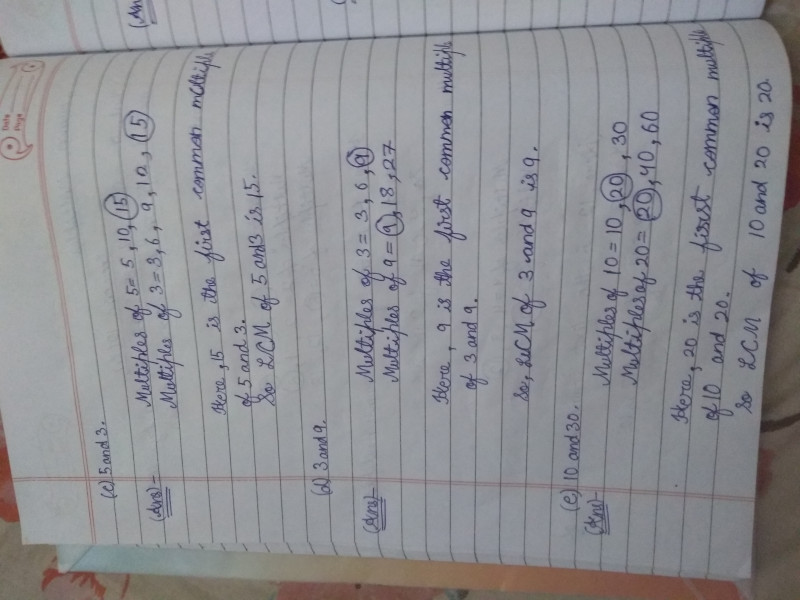 Date
Page
(c) 5 and 3.
(Ans)- Multiples of 5 = 5, 10, 15
Multiples of 3 = 3, 6, 9, 12, 15
Here, 15 is the first common multiple
of 5 and 3.
So LCM of 5 and 3 is 15.
(d) 3 and 9.
(Ans)- Multiples of 3 = 3, 6, 9
Multiples of 9 = 9, 18, 27
Here, 9 is the first common multiple
of 3 and 9.
So, LCM of 3 and 9 is 9.
(e) 10 and 30.
(Ans)- Multiples of 10 = 10, 20, 30
Multiples of 20 = 20, 40, 60
Here, 20 is the first common multiple
of 10 and 20.
So LCM of 10 and 20 is 20.